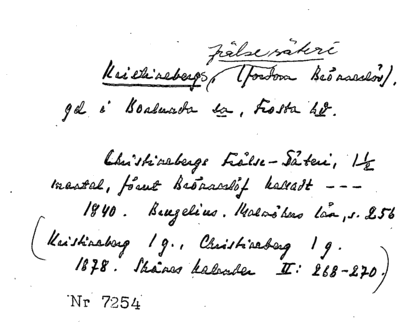 frälse säteri
Kristinebergs, (fordom Brönneslöv),
gd i Bosarps sn, Frosta hd.
Christinebergs Frälse-Säteri, 1 1/2
mantal, förut Brönneslöf kalladt ---
1840. Bengelius. Malmöhus län, s. 256
(Kristineberg 1 g., Christineberg 1 g.
1878. Skånes kalender II: 268-270.)
Nr 7254